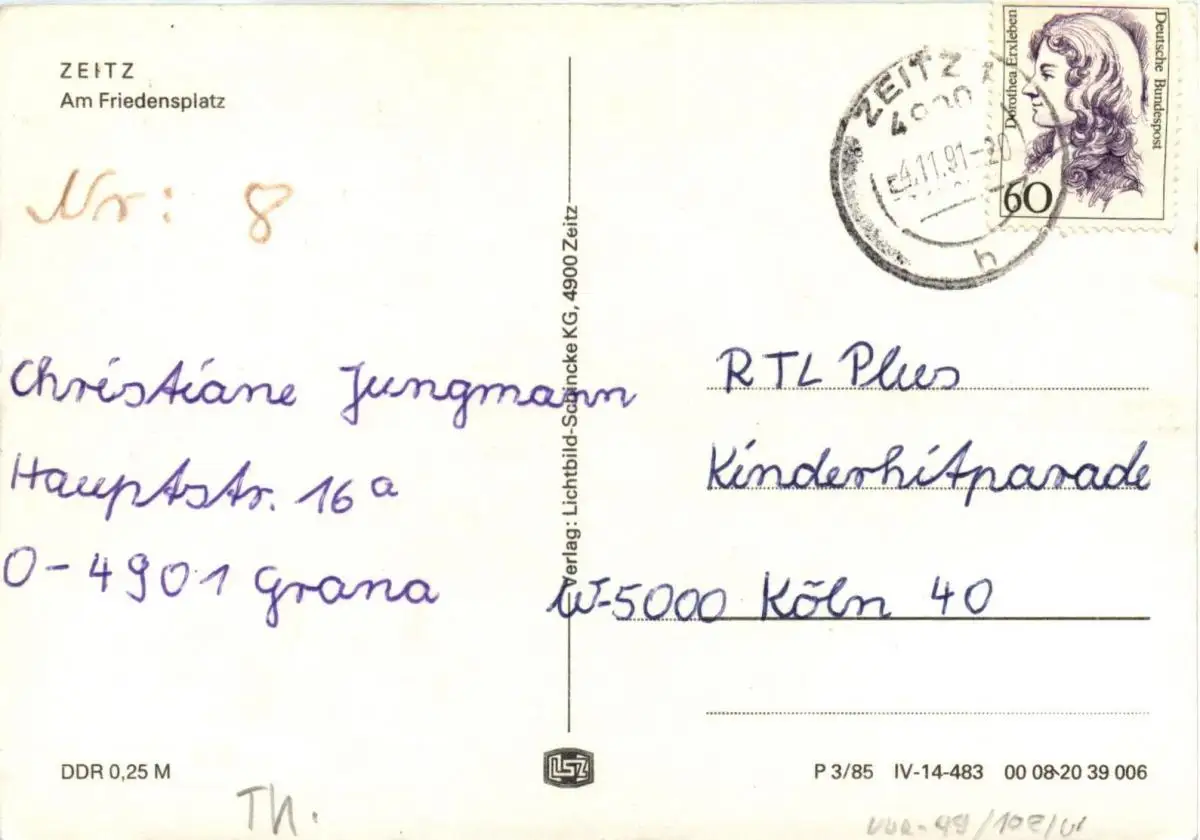 ZEITZ
Am Friedensplatz
Nr: 8
Christiane Jungmann
Hauptstr. 16a
O-4901 Grana
DDR 0,25 M
Th.
Verlag: Lichtbild-Schincke KG, 4900 Zeitz
LSZ
ZEITZ
4900
4.11.91-20
h
Dorothea Erxleben
Deutsche Bundespost
60
RTL Plus
Kinderhitparade
W-5000 Köln 40
P 3/85 IV-14-483 00 08-20 39 006